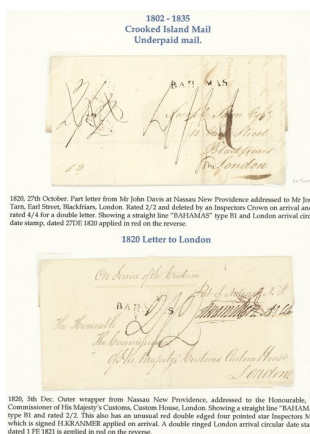 1802 - 1835
Crooked Island Mail
Underpaid mail.
BAHAMAS
Street
Blackfriars
London
1820, 27th October. Part letter from Mr John Davis at Nassau New Providence addressed to Mr Jo
Tarn, Earl Street, Blackfriars, London. Rated 2/2 and deleted by an Inspectors Crown on arrival and
rated 4/4 for a double letter. Showing a straight line "BAHAMAS" type B1 and London arrival circ
date stamp, dated 27DE 1820 applied in red on the reverse.
1820 Letter to London
On Service of the Customs
BAHAMAS
The Honorable
The Commissioners
of His Majesty's Customs, Custom House
London
1820, 5th Dec. Outer wrapper from Nassau New Providence, addressed to the Honourable,
Commissioner of His Majesty's Customs, Custom House, London. Showing a straight line "BAHAM
type B1 and rated 2/2. This also has an unusual red double edged four pointed star Inspectors M
which is signed H.KRANMER applied on arrival. A double ringed London arrival circular date sta
dated 1 FE 1821 is applied in red on the reverse.